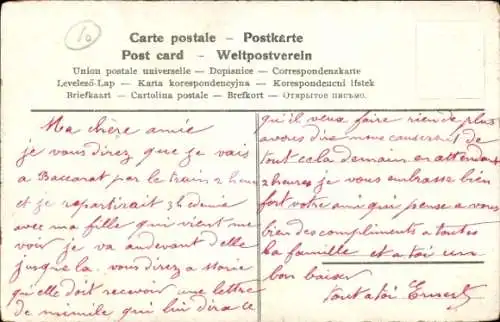 10
Carte postale – Postkarte
Post card – Weltpostverein
Union postale universelle — Dopisnice — Correspondenzkarte
Levelező-Lap — Karta korespondencyjna — Korespondencni lístek
Briefkaart — Cartolina postale — Brefkort — Открытое письмо.
Ma chère amie
je vous direz que je vais
a Baccarat par le train 2 heure
et je repartirait 3h
avec ma fille qui vient me
voir je va audevant d'elle
jusque la. vous direz a
qu'elle doit recevoir une lettre
de mimile qui lui dira ce
qu'il veux faire rien de plus
a vous dire nous causerait de
tout cela demain en attendant
2 heures je vous embrasse bien
fort votre ami qui pense a vous
bien des compliments a toutes
la famille et a toi un
bon baiser
tout a toi Ernest